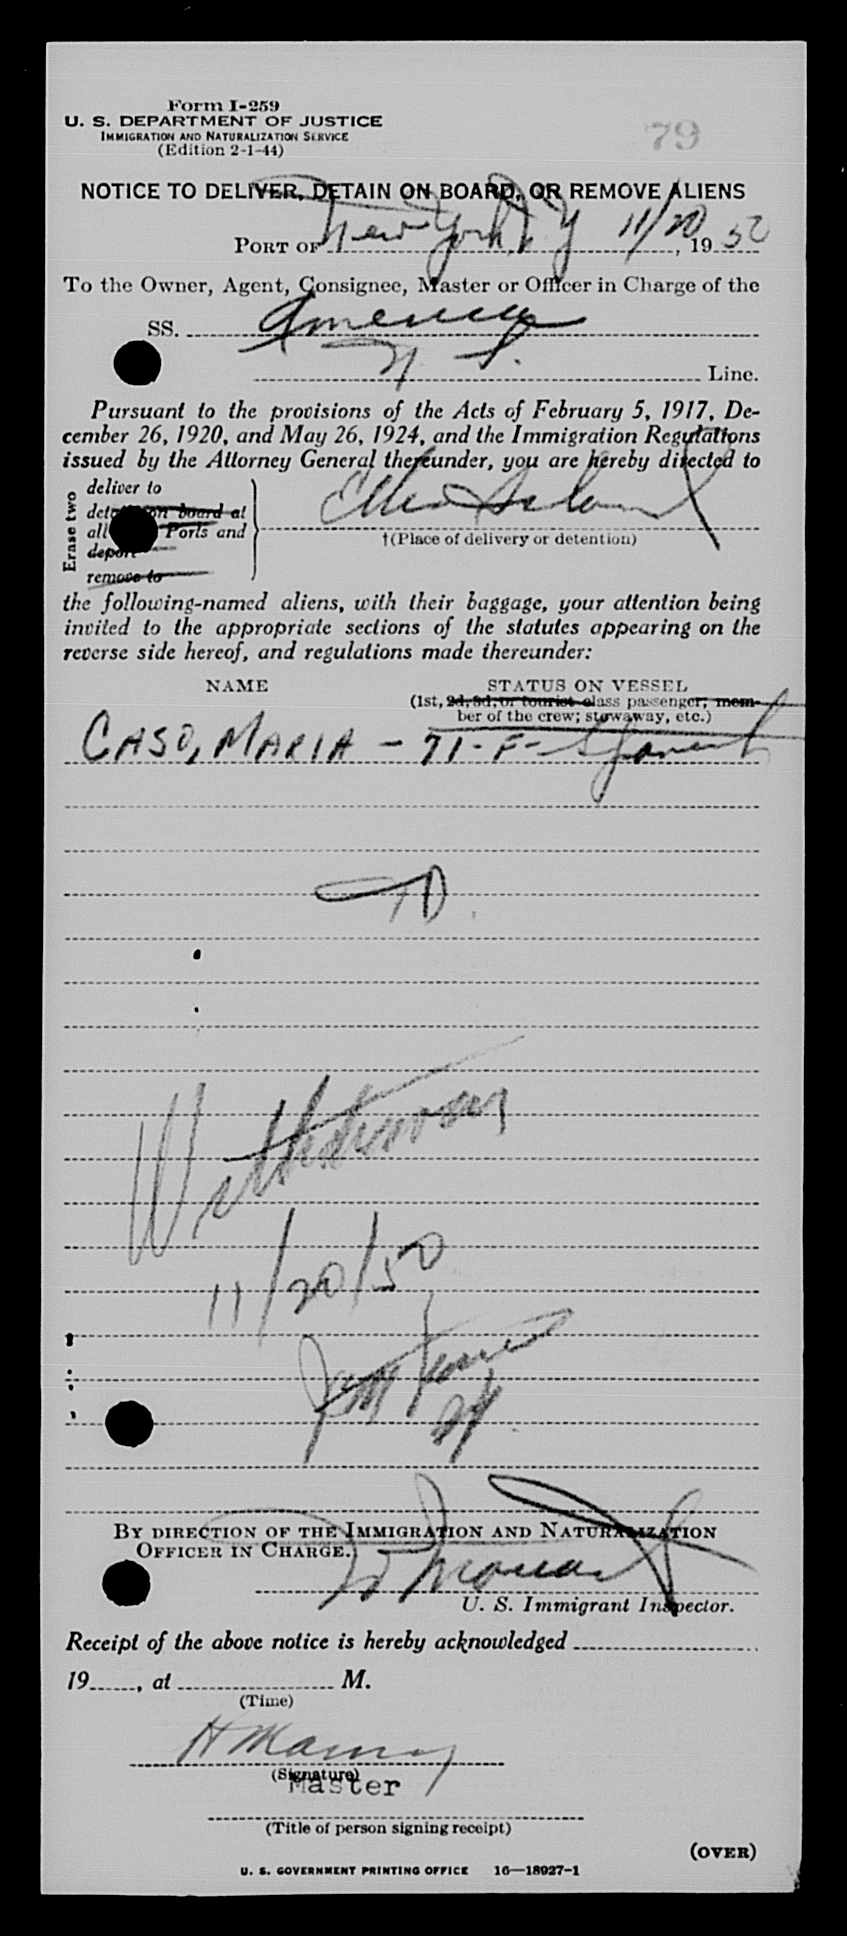 Form I-259
U. S. DEPARTMENT OF JUSTICE
IMMIGRATION AND NATURALIZATION SERVICE
(Edition 2-1-44)
79
NOTICE TO DELIVER, DETAIN ON BOARD, OR REMOVE ALIENS
PORT OF New York, N Y 11/20, 19 50
To the Owner, Agent, Consignee, Master or Officer in Charge of the
SS. America
U. S. Line.
Pursuant to the provisions of the Acts of February 5, 1917, De-
cember 26, 1920, and May 26, 1924, and the Immigration Regulations
issued by the Attorney General thereunder, you are hereby directed to
Erase two
deliver to
detention board at
all Ports and
deport
remove to
Ellis Island
†(Place of delivery or detention)
the following-named aliens, with their baggage, your attention being
invited to the appropriate sections of the statutes appearing on the
reverse side hereof, and regulations made thereunder:
NAME STATUS ON VESSEL
(1st, 2d, 3d, or tourist class passenger; mem-
ber of the crew; stowaway, etc.)
CASO, MARIA - 71 - F - Spanish
TD.
Withdrawn
11/20/50
BY DIRECTION OF THE IMMIGRATION AND NATURALIZATION
OFFICER IN CHARGE.
U. S. Immigrant Inspector.
Receipt of the above notice is hereby acknowledged
19, at M.
(Time)
(Signature)
Master
(Title of person signing receipt)
(OVER)
U. S. GOVERNMENT PRINTING OFFICE 16—18927-1